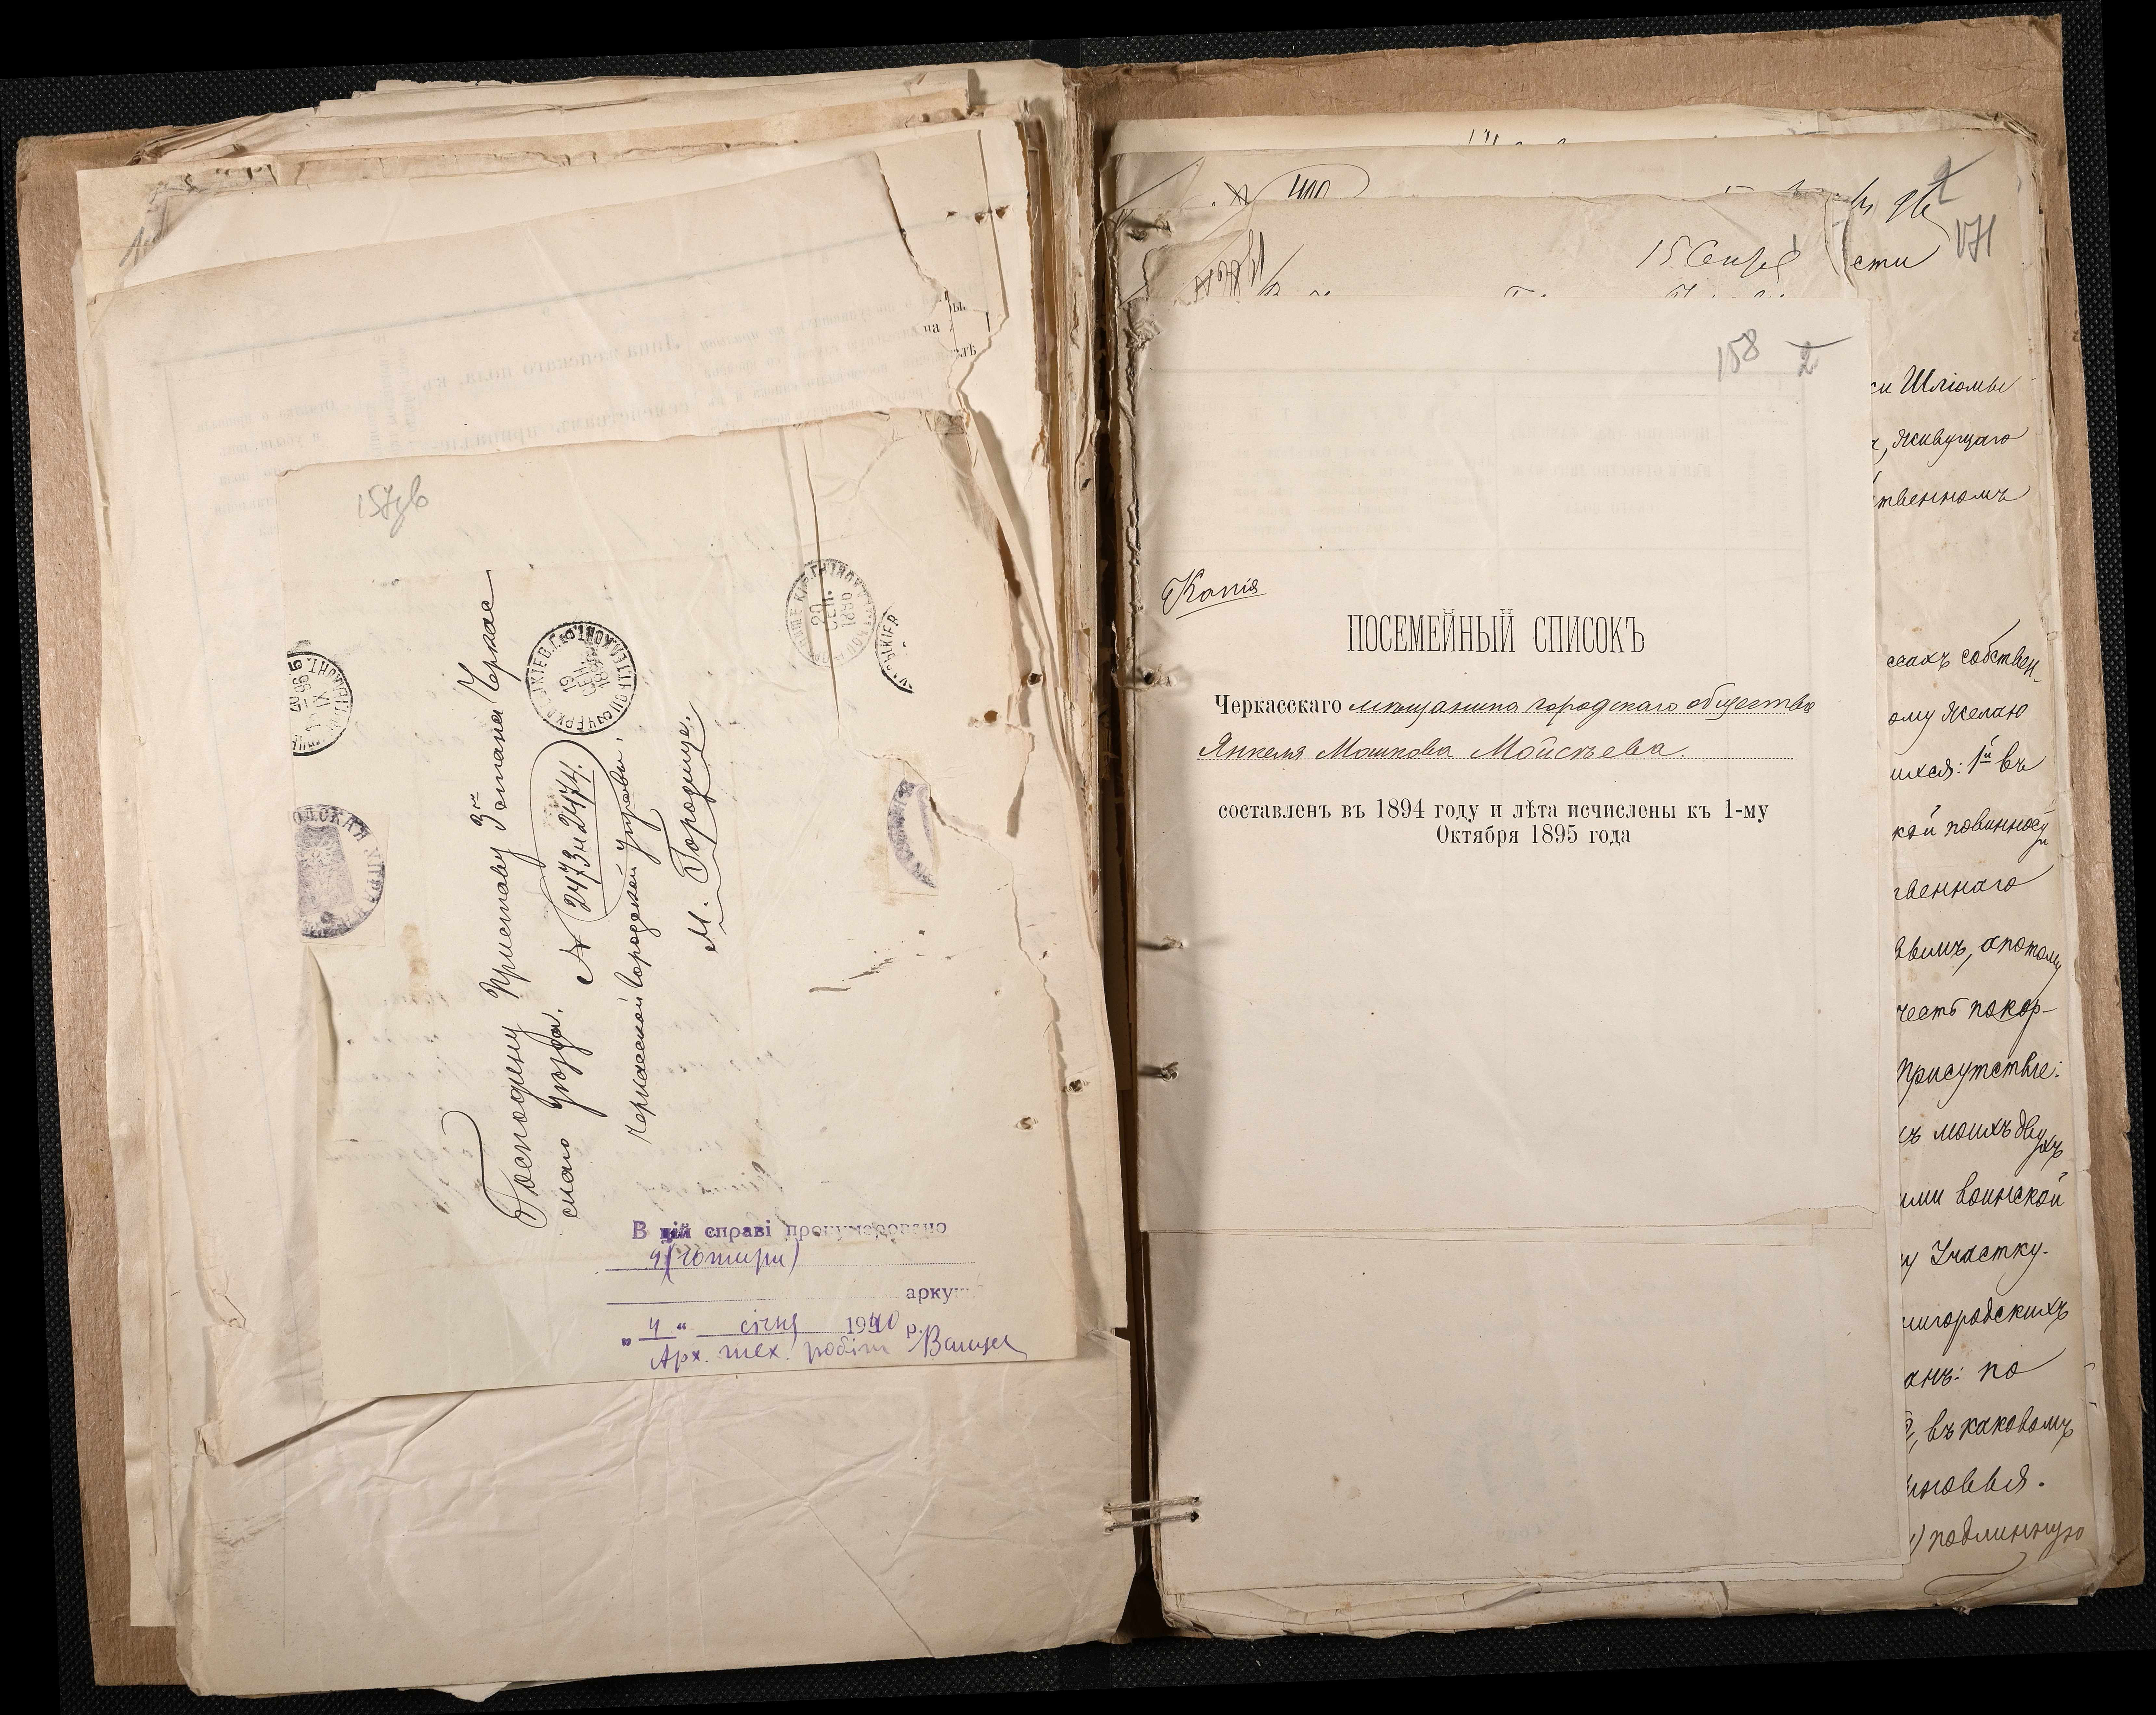 157зв
Господину Приставу 3го стана Черкас
скаго уѣзда. № 2473 и 2474.
Черкасской городской управы.
М. Городище.
19
СЕН.
20
СЕН.
В цій справі пронумеровано
4 (чотири)
арку
„ 4 “ січня 1940 р.
Арх. тех. робіт
171
15 Сентя
сти
158
2
Копія
ПОСЕМЕЙНЫЙ СПИСОКЪ
Черкасскаго мѣщанина городскаго общества
Янкеля Мошкова Мойсѣева.
составленъ въ 1894 году и лѣта исчислены къ 1-му
Октября 1895 года
Шліомы
, живущаго
твенномъ
ссахъ собствен-
ому желаю
ихся: 1й въ
кой повинносй
твеннаго
, а потому
честь покор-
Присутствіе:
моихъ двухъ
ими воинской
у Участку.
нигородскихъ
анъ: по
, въ каковомъ
новья.
) подлинную